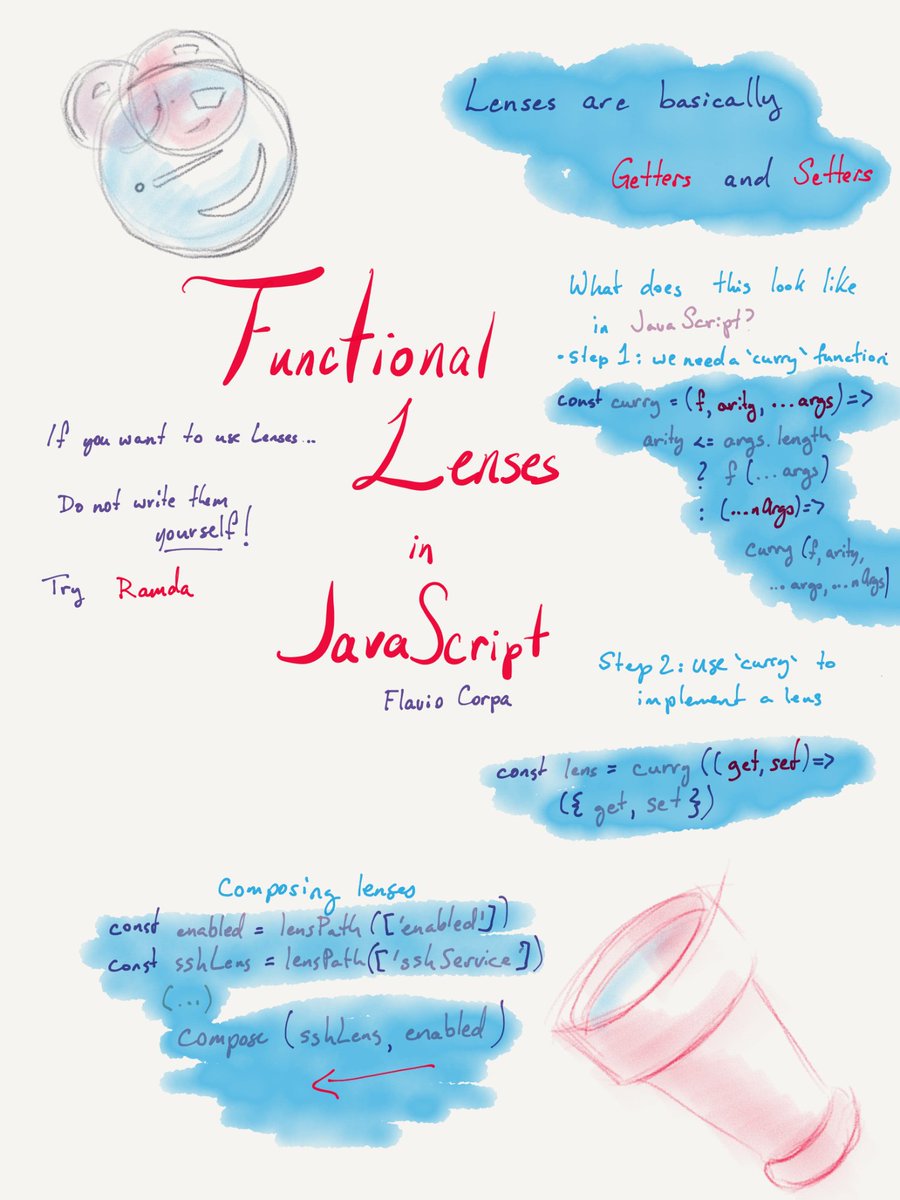 Lenses are basically
Getters and Setters
Functional
Lenses
in
JavaScript
Flavio Corpa
If you want to use Lenses...
Do not write them
yourself!
Try Ramda
What does this look like
in JavaScript?
• Step 1: we need a `curry` function
const curry = (f, arity, ...args) =>
arity <= args.length
? f (...args)
: (...nArgs) =>
curry (f, arity,
...args, ...nArgs)
Step 2: use `curry` to
implement a lens
const lens = curry ((get, set) =>
({ get, set })
Composing lenses
const enabled = lensPath (['enabled'])
const sshLens = lensPath(['sshService'])
(...)
compose (sshLens, enabled)